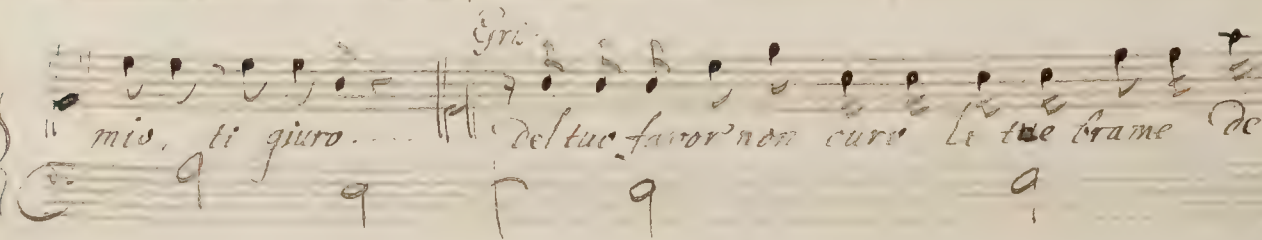 Gri.
mio, ti giuro.... Del tuo favor non curo le tue brame De